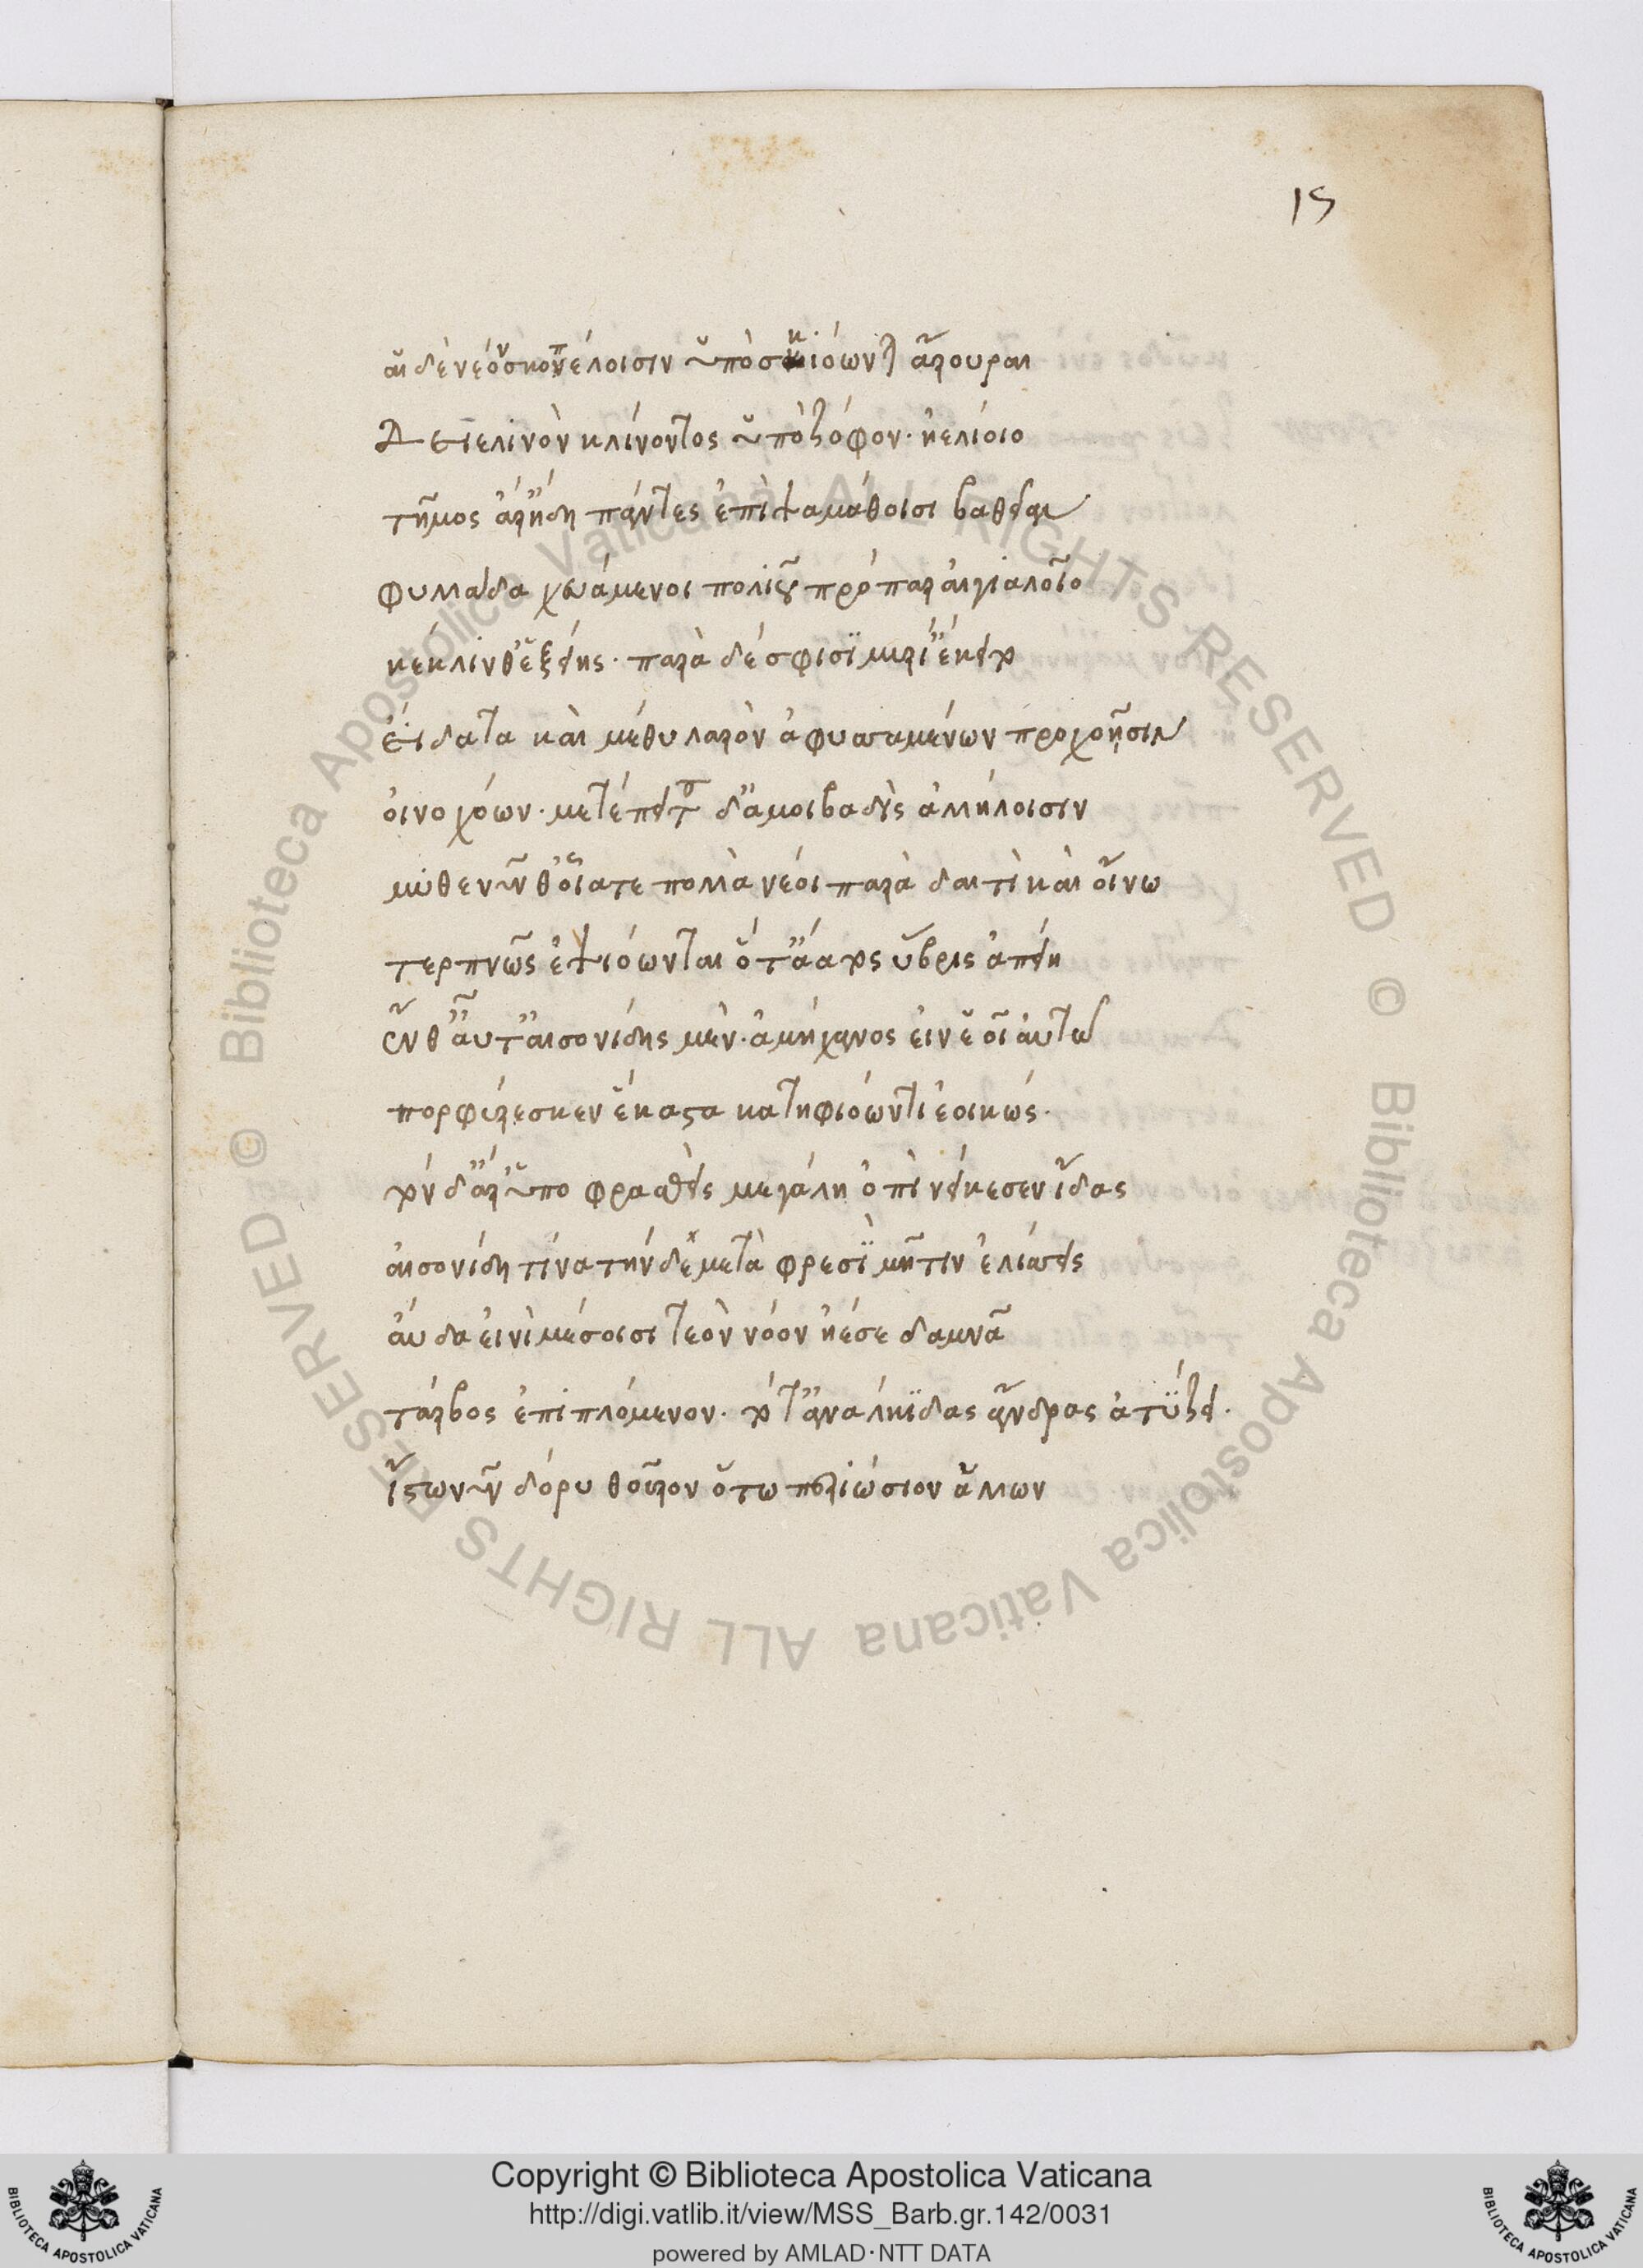 15
αἱ δὲ νέον σκοπέλοισιν ὑπὸ σκιόωνται ἄρουραι
δειελινὸν κλίνοντος ὑπὸ ζόφον· ἠελίοιο
τῆμος ἄρ' ἤδη πάντες ἐπὶ ψαμάθοισι βαθεῖαν
φυλλάδα χευάμενοι πολιοῦ πρόπαρ αἰγιαλοῖο
κέκλινθ' ἑξείης· παρὰ δέ σφισι μυρί' ἔκειτο
εἴδατα καὶ μέθυ λαρὸν ἀφυσσαμένων προχοῇσιν
οἰνοχόων· μετέπειτα δ' ἀμοιβαδὶς ἀλλήλοισιν
μυθεῦνθ' οἷά τε πολλὰ νέοι παρὰ δαιτὶ καὶ οἴνω
τερπνῶς ἑψιόωνται ὅτ' ἄατος ὕβρις ἀπείη
ἔνθ' αὖτ' αἰσονίδης μὲν· ἀμήχανος εἰν ἑοῖ αὐτῶ
πορφύρεσκεν ἕκαστα κατηφιόωντι ἐοικώς·
τὸν δ' ἄρ' ὑποφρασθεὶς μεγάλη ὀπὶ νείκεσεν ἴδας
αἰσονίδη τίνα τήνδε μετὰ φρεσὶ μῆτιν ἑλίσσεις
αὔδα εἰνὶ μέσοισι τεὸν νόον ἠέ σε δαμνᾶ
τάρβος ἐπιπλόμενον· τό τ' ἀνάλκιδας ἄνδρας ἀτύζει·
ἴστω νῦν δόρυ θοῦρον ὅτω περιώσιον ἄλλων
Copyright © Biblioteca Apostolica Vaticana
http://digi.vatlib.it/view/MSS_Barb.gr.142/0031
powered by AMLAD·NTT DATA